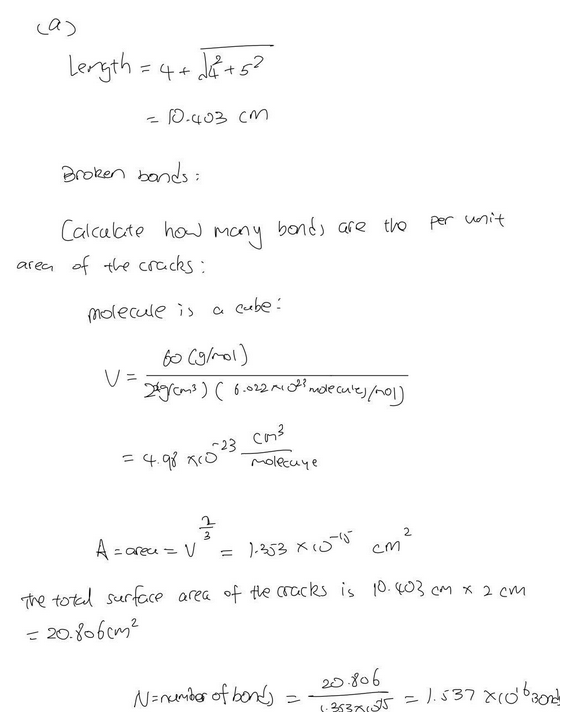 (a)
Length = 4 + √4² + 5²
= 10.403 cm
Broken bonds:
Calculate how many bonds are tho per unit
area of the cracks:
molecule is a cube:
V = 60 (g/mol) / 2(g/cm³) ( 6.022 × 10²³ molecules/mol)
= 4.98 × 10⁻²³ cm³ / molecule
A = area = V^(2/3) = 1.353 × 10⁻¹⁵ cm²
The total surface area of the cracks is 10.403 cm × 2 cm
= 20.806 cm²
N = number of bonds = 20.806 / 1.353×10⁻¹⁵ = 1.537 × 10¹⁶ Bond